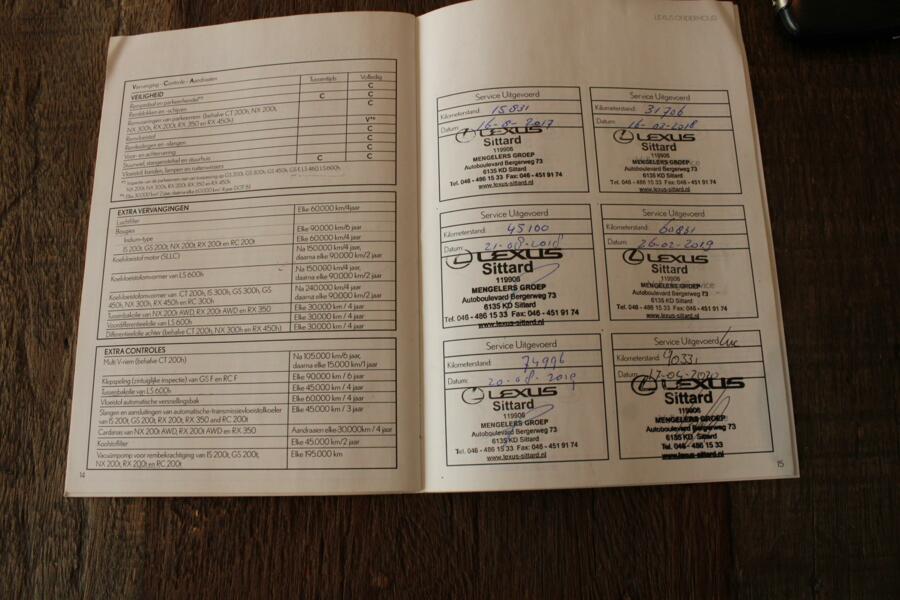 Vervanging - Controle - Aandraaien
Tussentijds
Volledig
VEILIGHEID
C
Rempedaal en parkeerhendel**
C
C
Remblokken en -schijven
C
Remvoeringen van parkeerrem (behalve CT 200h, NX 200t,
NX 300h, RX 200t, RX 350 en RX 450h)
Remvloeistof
Remleidingen en -slangen
C
Voor- en achtervering
C
Stuurwiel, stangenstelsel en stuurhuis
C
C
EXTRA VERVANGINGEN
Luchtfilter
Elke 60.000 km/4jaar
Bougies
Iridium-type
Elke 90.000 km/6 jaar
IS 200t, GS 200t, NX 200t, RX 200t en RC 200t
Elke 60.000 km/4 jaar
Koelvloeistof motor (SLLC)
Na 150.000 km/4 jaar,
daarna elke 90.000 km/2 jaar
Koelvloeistofomvormer van LS 600h
Na 150.000 km/4 jaar
daarna elke 90.000 km/2 jaar
Koelvloeistofomvormer van CT 200h, IS 300h, GS 300h, GS
450h, NX 300h, RX 450h en RC 300h
Na 240.000 km/4 jaar
daarna elke 90.000 km/2 jaar
Tussenbakolie van NX 200t AWD, RX 200t AWD en RX 350
Elke 30.000 km / 4 jaar
Voordifferentieelolie van LS 600h
Elke 30.000 km / 4 jaar
Differentieelolie achter (behalve CT 200h, NX 300h en RX 450h)
Elke 30.000 km / 4 jaar
EXTRA CONTROLES
Multi V-riem (behalve CT 200h)
Na 105.000 km/6 jaar,
daarna elke 15.000 km/1 jaar
Klepspeling (zintuiglijke inspectie) van GS F en RC F
Elke 90.000 km / 6 jaar
Tussenbakolie van LS 600h
Elke 45.000 km / 4 jaar
Vloeistof automatische versnellingsbak
Elke 60.000 km / 4 jaar
Slangen en aansluitingen van automatische-transmissievloeistofkoeler
van IS 200t, GS 200t, RX 200t, RX 350 and RC 200t
Elke 45.000 km / 3 jaar
Cardanas van NX 200t AWD, RX 200t AWD en RX 350
Aandraaien elke 30.000km / 4 jaar
Koolstoffilter
Elke 45.000 km/2 jaar
Vacuümpomp voor rembekrachtiging van IS 200t, GS 200t,
NX 200t, RX 200t en RC 200t
Elke 195.000 km
14
LEXUS ONDERHOUD
Service Uitgevoerd
Kilometerstand: 15831
Datum: 16-8-2017
LEXUS
Sittard
119906
MENGELERS GROEP
Autoboulevard Bergerweg 73
6135 KD Sittard
Tel. 046 - 486 15 33 Fax: 046 - 451 91 74
www.lexus-sittard.nl
Service Uitgevoerd
Kilometerstand: 31706
Datum: 16-02-2018
LEXUS
Sittard
119906
MENGELERS GROEP
Autoboulevard Bergerweg 73
6135 KD Sittard
Tel. 046 - 486 15 33 Fax: 046 - 451 91 74
www.lexus-sittard.nl
Service Uitgevoerd
Kilometerstand: 45100
Datum: 21-08-2018
LEXUS
Sittard
119906
MENGELERS GROEP
Autoboulevard Bergerweg 73
6135 KD Sittard
Tel. 046 - 486 15 33 Fax: 046 - 451 91 74
www.lexus-sittard.nl
Service Uitgevoerd
Kilometerstand: 60831
Datum: 26-02-2019
LEXUS
Sittard
119906
MENGELERS GROEP
Autoboulevard Bergerweg 73
6135 KD Sittard
Tel. 046 - 486 15 33 Fax: 046 - 451 91 74
www.lexus-sittard.nl
Service Uitgevoerd
Kilometerstand: 74996
Datum: 20-08-2019
LEXUS
Sittard
119906
MENGELERS GROEP
Autoboulevard Bergerweg 73
6135 KD Sittard
Tel. 046 - 486 15 33 Fax: 046 - 451 91 74
www.lexus-sittard.nl
Service Uitgevoerd
Kilometerstand: 90331
Datum: 17-04-2020
LEXUS
Sittard
119906
MENGELERS GROEP
Autoboulevard Bergerweg 73
6135 KD Sittard
Tel. 046 - 486 15 33 Fax: 046 - 451 91 74
www.lexus-sittard.nl
15